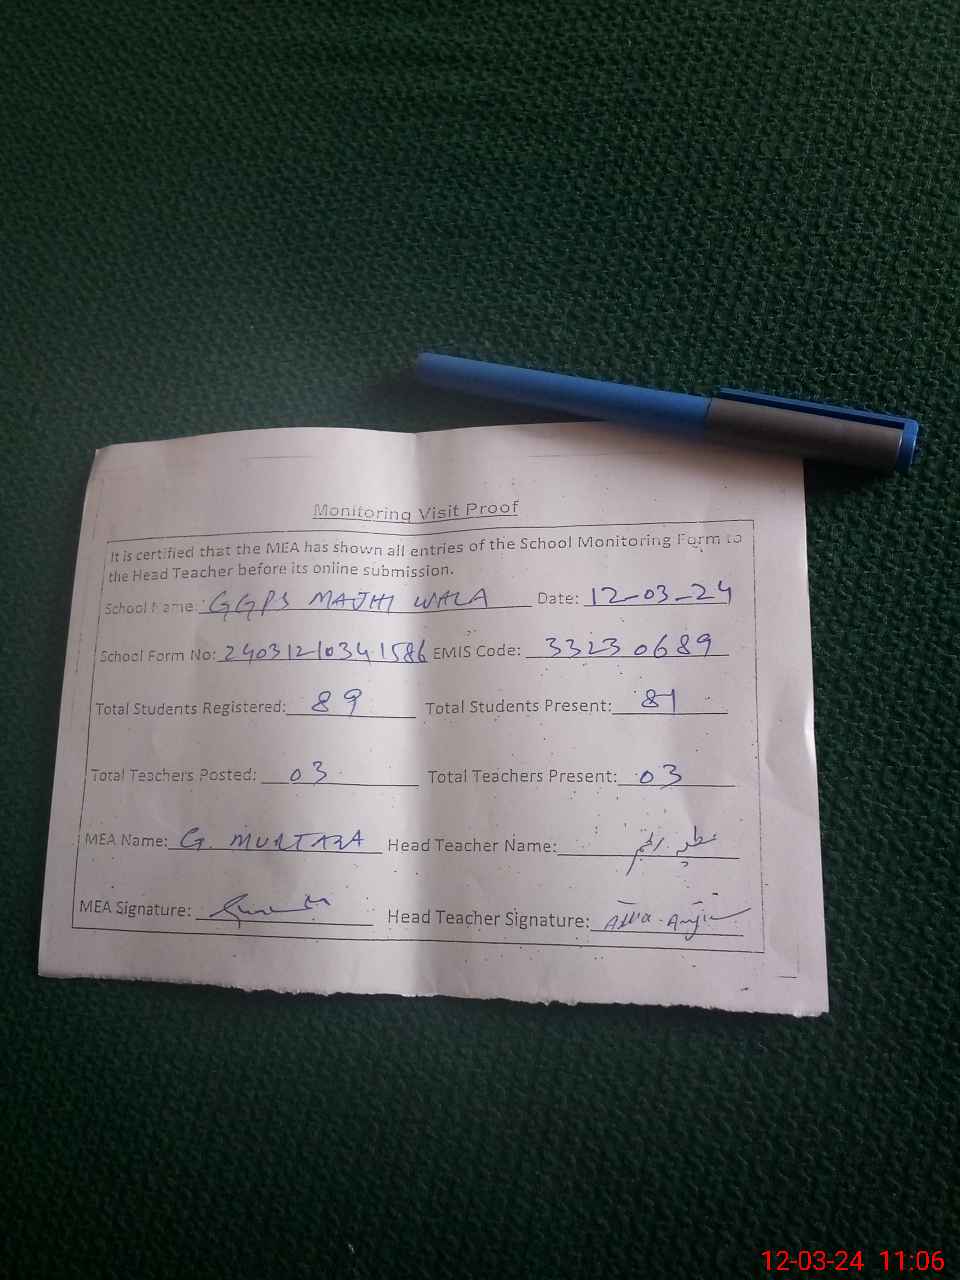 Monitoring Visit Proof
It is certified that the MEA has shown all entries of the School Monitoring Form to
the Head Teacher before its online submission.
School Name: GGPS MAJHI WALA Date: 12-03-24
School Form No: 2403121034 1586 EMIS Code: 33230689
Total Students Registered: 89 Total Students Present: 81
Total Teachers Posted: 03 Total Teachers Present: 03
MEA Name: G. MURTAZA Head Teacher Name:
MEA Signature: Head Teacher Signature:
12-03-24 11:06